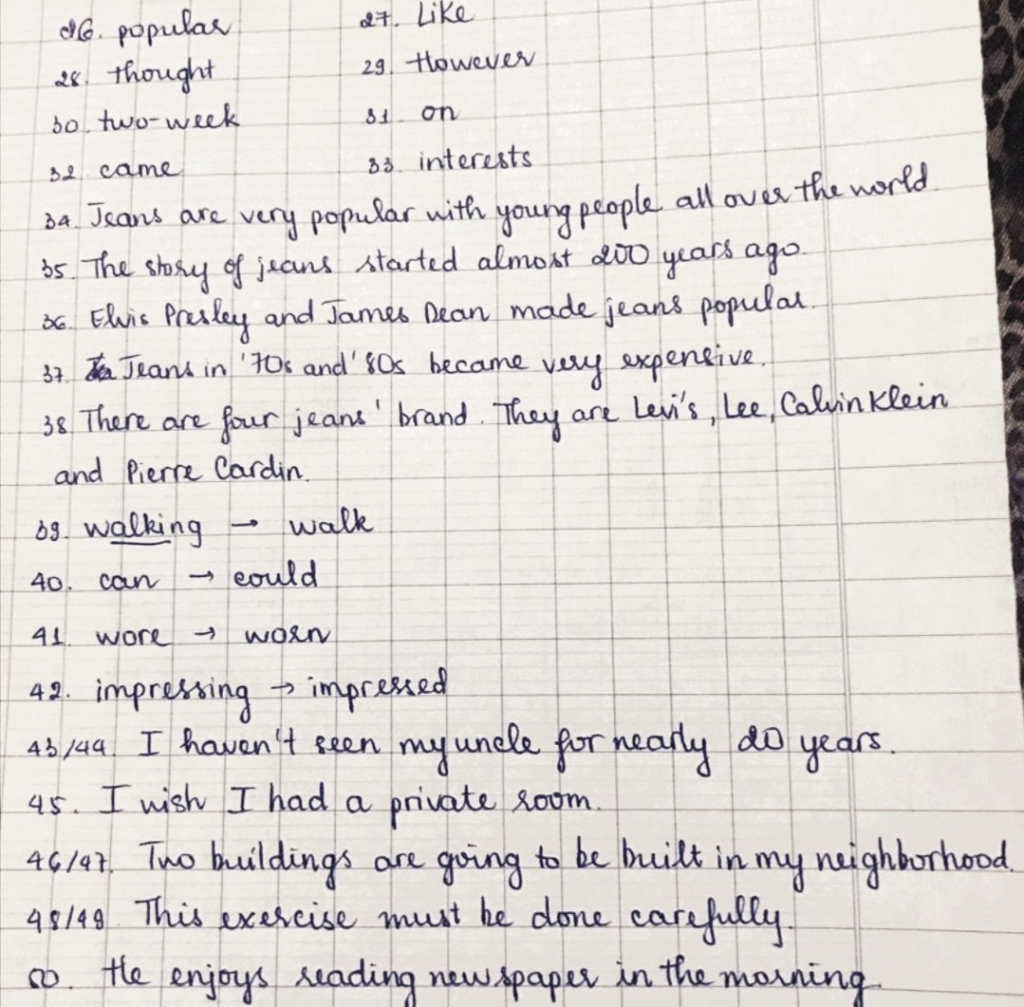 26. popular 27. Like
28. thought 29. However
30. two-week 31. on
32. came 33. interests
34. Jeans are very popular with young people all over the world.
35. The story of jeans started almost 200 years ago.
36. Elvis Presley and James Dean made jeans popular.
37. Jeans in '70s and '80s became very expensive.
38. There are four jeans' brand. They are Levi's, Lee, Calvin Klein
and Pierre Cardin.
39. walking → walk
40. can → could
41. wore → worn
42. impressing → impressed
43/44. I haven't seen my uncle for nearly 20 years.
45. I wish I had a private room.
46/47. Two buildings are going to be built in my neighborhood.
48/49. This exercise must be done carefully.
50. He enjoys reading newspaper in the morning.